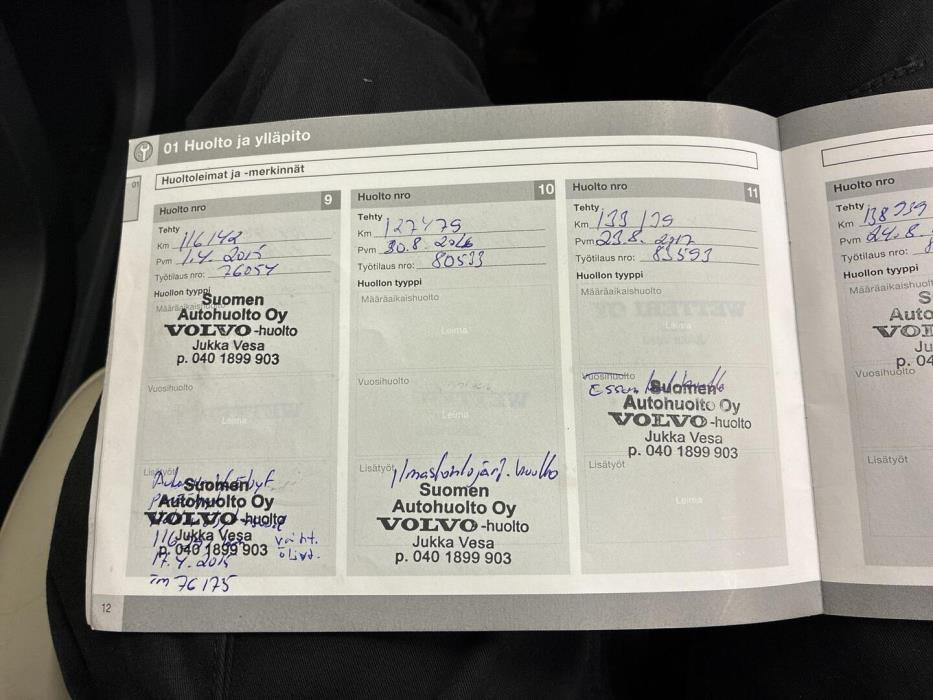 01 Huolto ja ylläpito
01
Huoltoleimat ja -merkinnät
Huolto nro 9
Tehty
Km 116142
Pvm 1.4. 2015
Työtilaus nro: 76054
Huollon tyyppi
Määräaikaishuolto
Suomen
Autohuolto Oy
VOLVO-huolto
Jukka Vesa
p. 040 1899 903
Vuosihuolto
Leima
Lisätyöt
Suomen
Autohuolto Oy
VOLVO-huolto
Jukka Vesa
p. 040 1899 903
vaiht.
17.4. 2015
76175
12
Huolto nro 10
Tehty
Km 127479
Pvm 30.8. 2016
Työtilaus nro: 80533
Huollon tyyppi
Määräaikaishuolto
Leima
Vuosihuolto
Leima
Lisätyöt
Ilmastointojärj. huolto
Suomen
Autohuolto Oy
VOLVO-huolto
Jukka Vesa
p. 040 1899 903
Huolto nro 11
Tehty
Km 133139
Pvm 23.8. 2017
Työtilaus nro: 83593
Huollon tyyppi
Määräaikaishuolto
Leima
Vuosihuolto
Suomen
Autohuolto Oy
VOLVO-huolto
Jukka Vesa
p. 040 1899 903
Lisätyöt
Leima
Huolto nro
Tehty
Km 138939
Pvm 24.8.
Työtilaus nro:
Huollon tyyppi
Määräaikaishuolto
Vuosihuolto
Lisätyöt